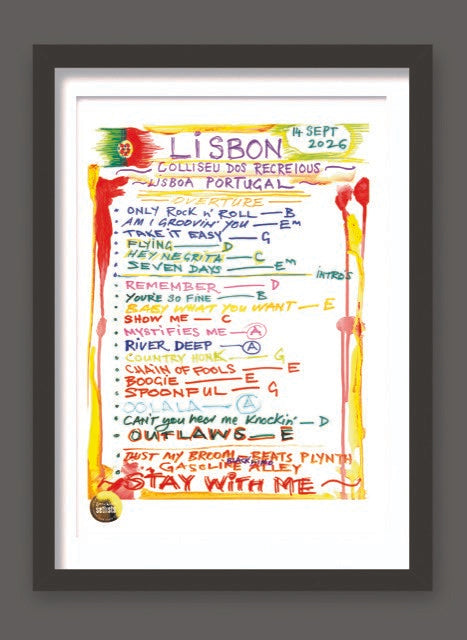 LiSBON
14 SEPT
2026
COLLISEU DOS RECREIOUS
LISBOA PORTUGAL
OVERTURE
ONLY ROCK n' ROLL — B
AM I GROOVIN' YOU — Em
TAKE IT EASY — G
FLYING — D
HEY NEGRITA — C
SEVEN DAYS — Em
INTRO'S
REMEMBER — D
YOU'RE SO FINE — B
BABY WHAT YOU WANT — E
SHOW ME — C
MYSTIFIES ME — A
RIVER DEEP — A
COUNTRY HONK — G
CHAIN OF FOOLS — E
BOOGIE — E
SPOONFUL — G
OOLALA — A
CAN'T you hear me Knockin' — D
OUTLAWS — E
DUST MY BROOM — BEATS PLYNTH
GASOLINE ALLEY
STAY WITH ME
setlists